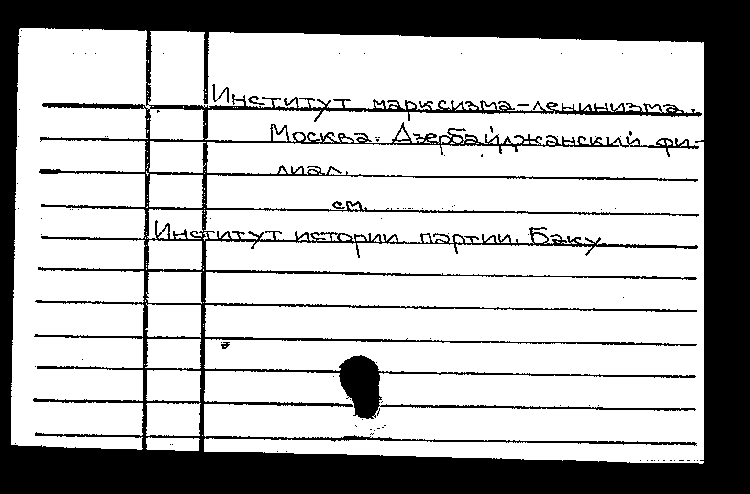 Институт марксизма-ленинизма.
Москва. Азербайджанский фи-
лиал.
см.
Институт истории партии. Баку